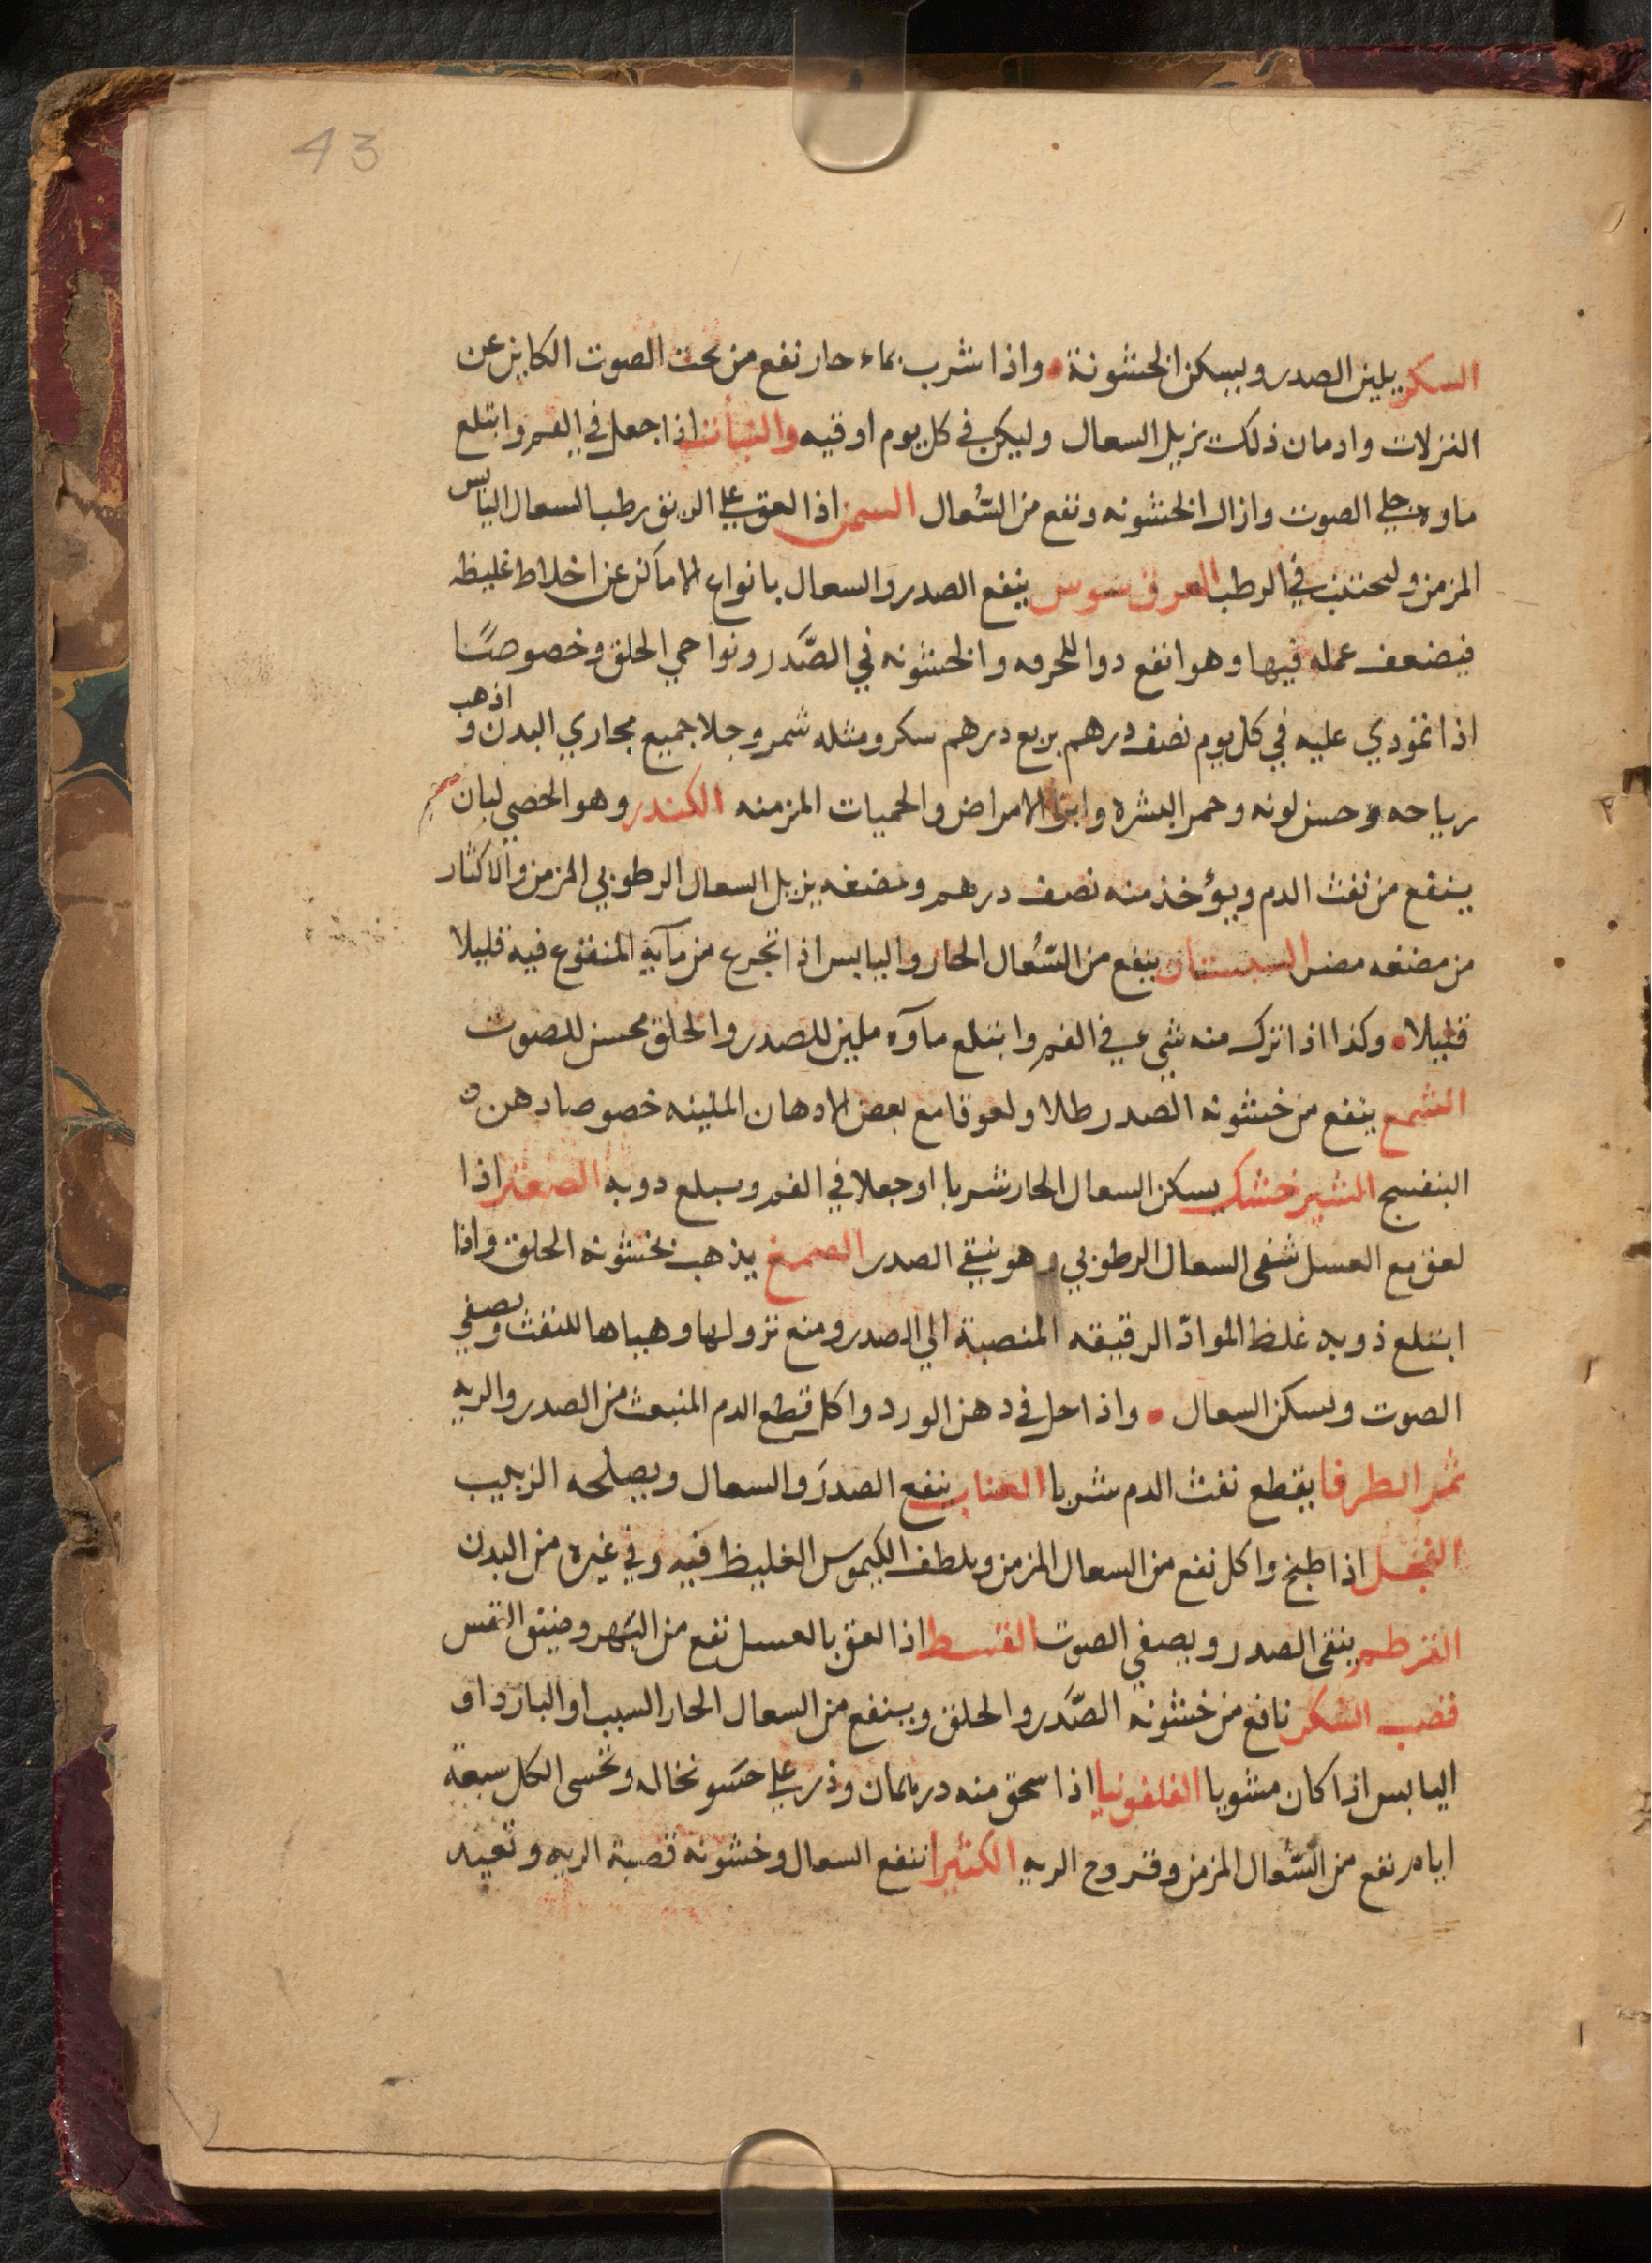 43
السكر يلين الصدر ويسكن الخشونة • واذا شرب بماء حار نفع من بحت الصوت الكاين عن
النزلات وادمان ذلك يزيل السعال وليكن في كل يوم اوقيه والنبات اذا جعل في الفم وابتلع
ماوه جلي الصوت وازال الخشونه ونفع من السُّعال السمن اذا لعق علي الريق رطب السعال اليابس
المزمن وليجتنب في الرطب العرق سوس ينفع الصدر والسعال بانواع الا ماكن عن اخلاط غليظه
فيضعف عمله فيها وهو انفع دوا للحرقه والخشونه في الصَّدر ونواحي الحلق وخصوصًا
اذا تمودي عليه في كل يوم نصف درهم بربع درهم سكر ومثله شمر وجلا جميع مجاري البدن و اذهب
رياحه وحسن لونه وحمر البشره وابرا الامراض والحميات المزمنه الكندر وهو الحصي لبان
ينفع من نفث الدم ويؤخذ منه نصف درهم ومضغه يزيل السعال الرطوبي المزمن والاكثار
من مضغه مضر السبستان ينفع من السُّعال الحار واليابس اذا تجرع من مآيه المنقوع فيه قليلا
قليلا • وكذا اذا ترك منه شيء في الفم وابتلع مآوه ملين للصدر والحلق محسن للصوت
الشمع ينفع من خشونه الصدر طلا ولعوقا مع بعض الادهان الملينه خصوصا دهن
البنفسج الشيرخشك يسكن السعال الحار شربا او جعلا في الفم ويبلع دوبه الصعتر اذا
لعق مع العسل شفى السعال الرطوبي وهو ينقي الصدر الصمغ يذهب بخشونه الحلق واذا
ابتلع ذوبه غلظ الموادّ الرقيقه المنصبة الي الصدر ومنع نزولها وهياها للنفث ويصفي
الصوت ويسكن السعال • واذا حل في دهن الورد واكل قطع الدم المنبعث من الصدر والريه
ثمر الطرفا يقطع نفث الدم شربا العناب ينفع الصدرَ والسعال ويصلحه الزبيب
الفجل اذا طبخ واكل نفع من السعال المزمن ويلطف الكيموس الغليظ فيه وفي غيره من البدن
القرطم ينقى الصدر ويصفي الصوت القسط اذا لعق بالعسل نفع من البهر وضيق النفس
قصب السُّكر نافع من خشونه الصَّدر والحلق وينفع من السعال الحار السبب او البارد او
اليابس اذا كان مشويا القلفونيا اذا سحق منه درهمان وذر علي حَسَو نخاله وتحسى الكل سبعة
ايام نفع من السُّعال المزمن وقروح الريه الكثيرا تنفع السعال وخشونه قصبة الريه وتعيد